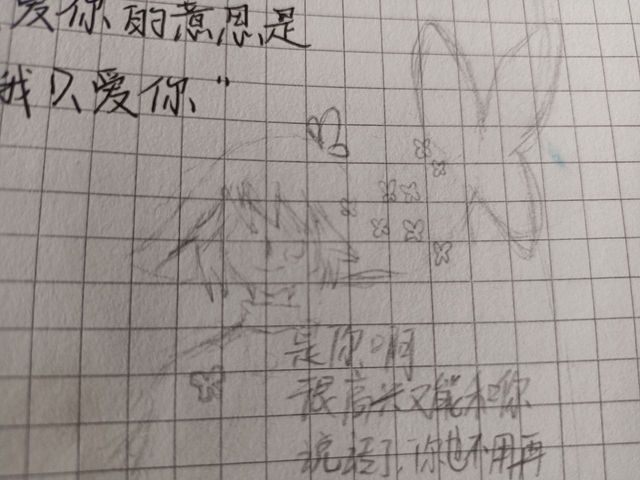 爱你的意思是
我只爱你"
是你啊
很高兴又能和你
说话了,你也不用再